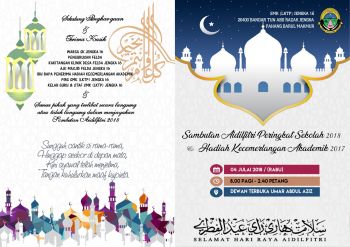 Sekalung Penghargaan
&
Terima Kasih
WARGA SK JENGKA 16
PENGURUSAN FELDA
KAKITANGAN KLINIK DESA FELDA JENGKA 16
AJK MASJID FELDA JENGKA 16
IBU BAPA PENERIMA HADIAH KECEMERLANGAN AKADEMIK
PIBG SMK (LKTP) JENGKA 16
KELAB GURU & STAF SMK (LKTP) JENGKA 16
&
Semua pihak yang terlibat secara langsung
atau tidak langsung dalam menjayakan
Sambutan Aidilfitri 2018
Sungguh cantik si rama-rama,
Hinggap sebentar di depan mata,
Kini syawal telah menjelma,
Tangan kehulurkan maaf kupinta.
SMK (LKTP) JENGKA 16
26400 BANDAR TUN ABD RAZAK JENGKA
PAHANG DARUL MAKMUR
Sambutan Aidilfitri Peringkat Sekolah 2018
& Hadiah Kecemerlangan Akademik 2017
04 JULAI 2018 / (RABU)
8.00 PAGI - 2.40 PETANG
DEWAN TERBUKA UMAR ABDUL AZIZ
سلامت هاري راي عيد الفطري
SELAMAT HARI RAYA AIDILFITRI